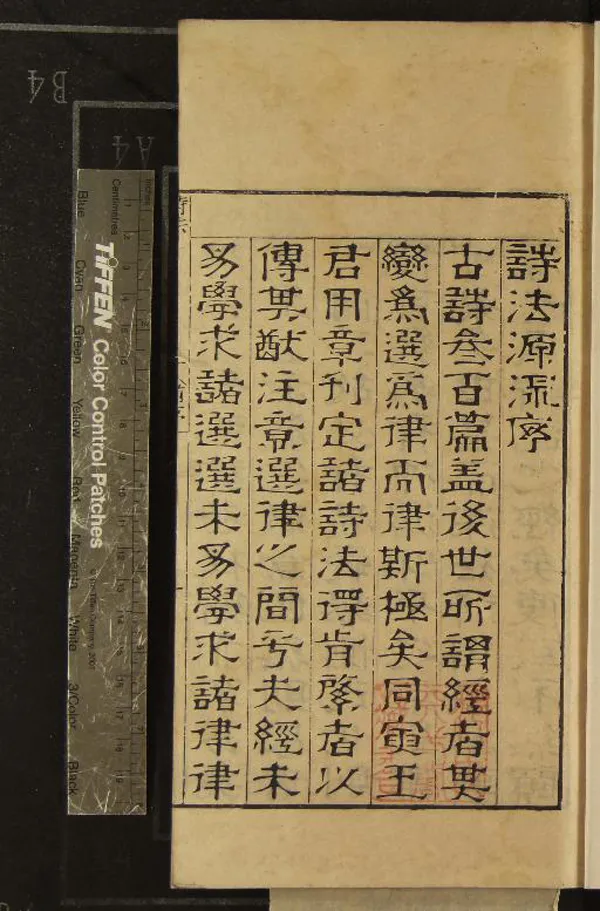 詩法源流序
古詩叄百篇盖後世所謂經者其
變爲選爲律而律斯極矣同寅王
君用章刋定諸詩法得肯綮者以
傳其猷注意選律之間乎夫經未
易學求諸選選未易學求諸律律
B4
A4
TIFFEN Color Control Patches
© The Tiffen Company, 2007
Centimetres
Inches
Blue
Cyan
Green
Yellow
Red
Magenta
White
3/Color
Black